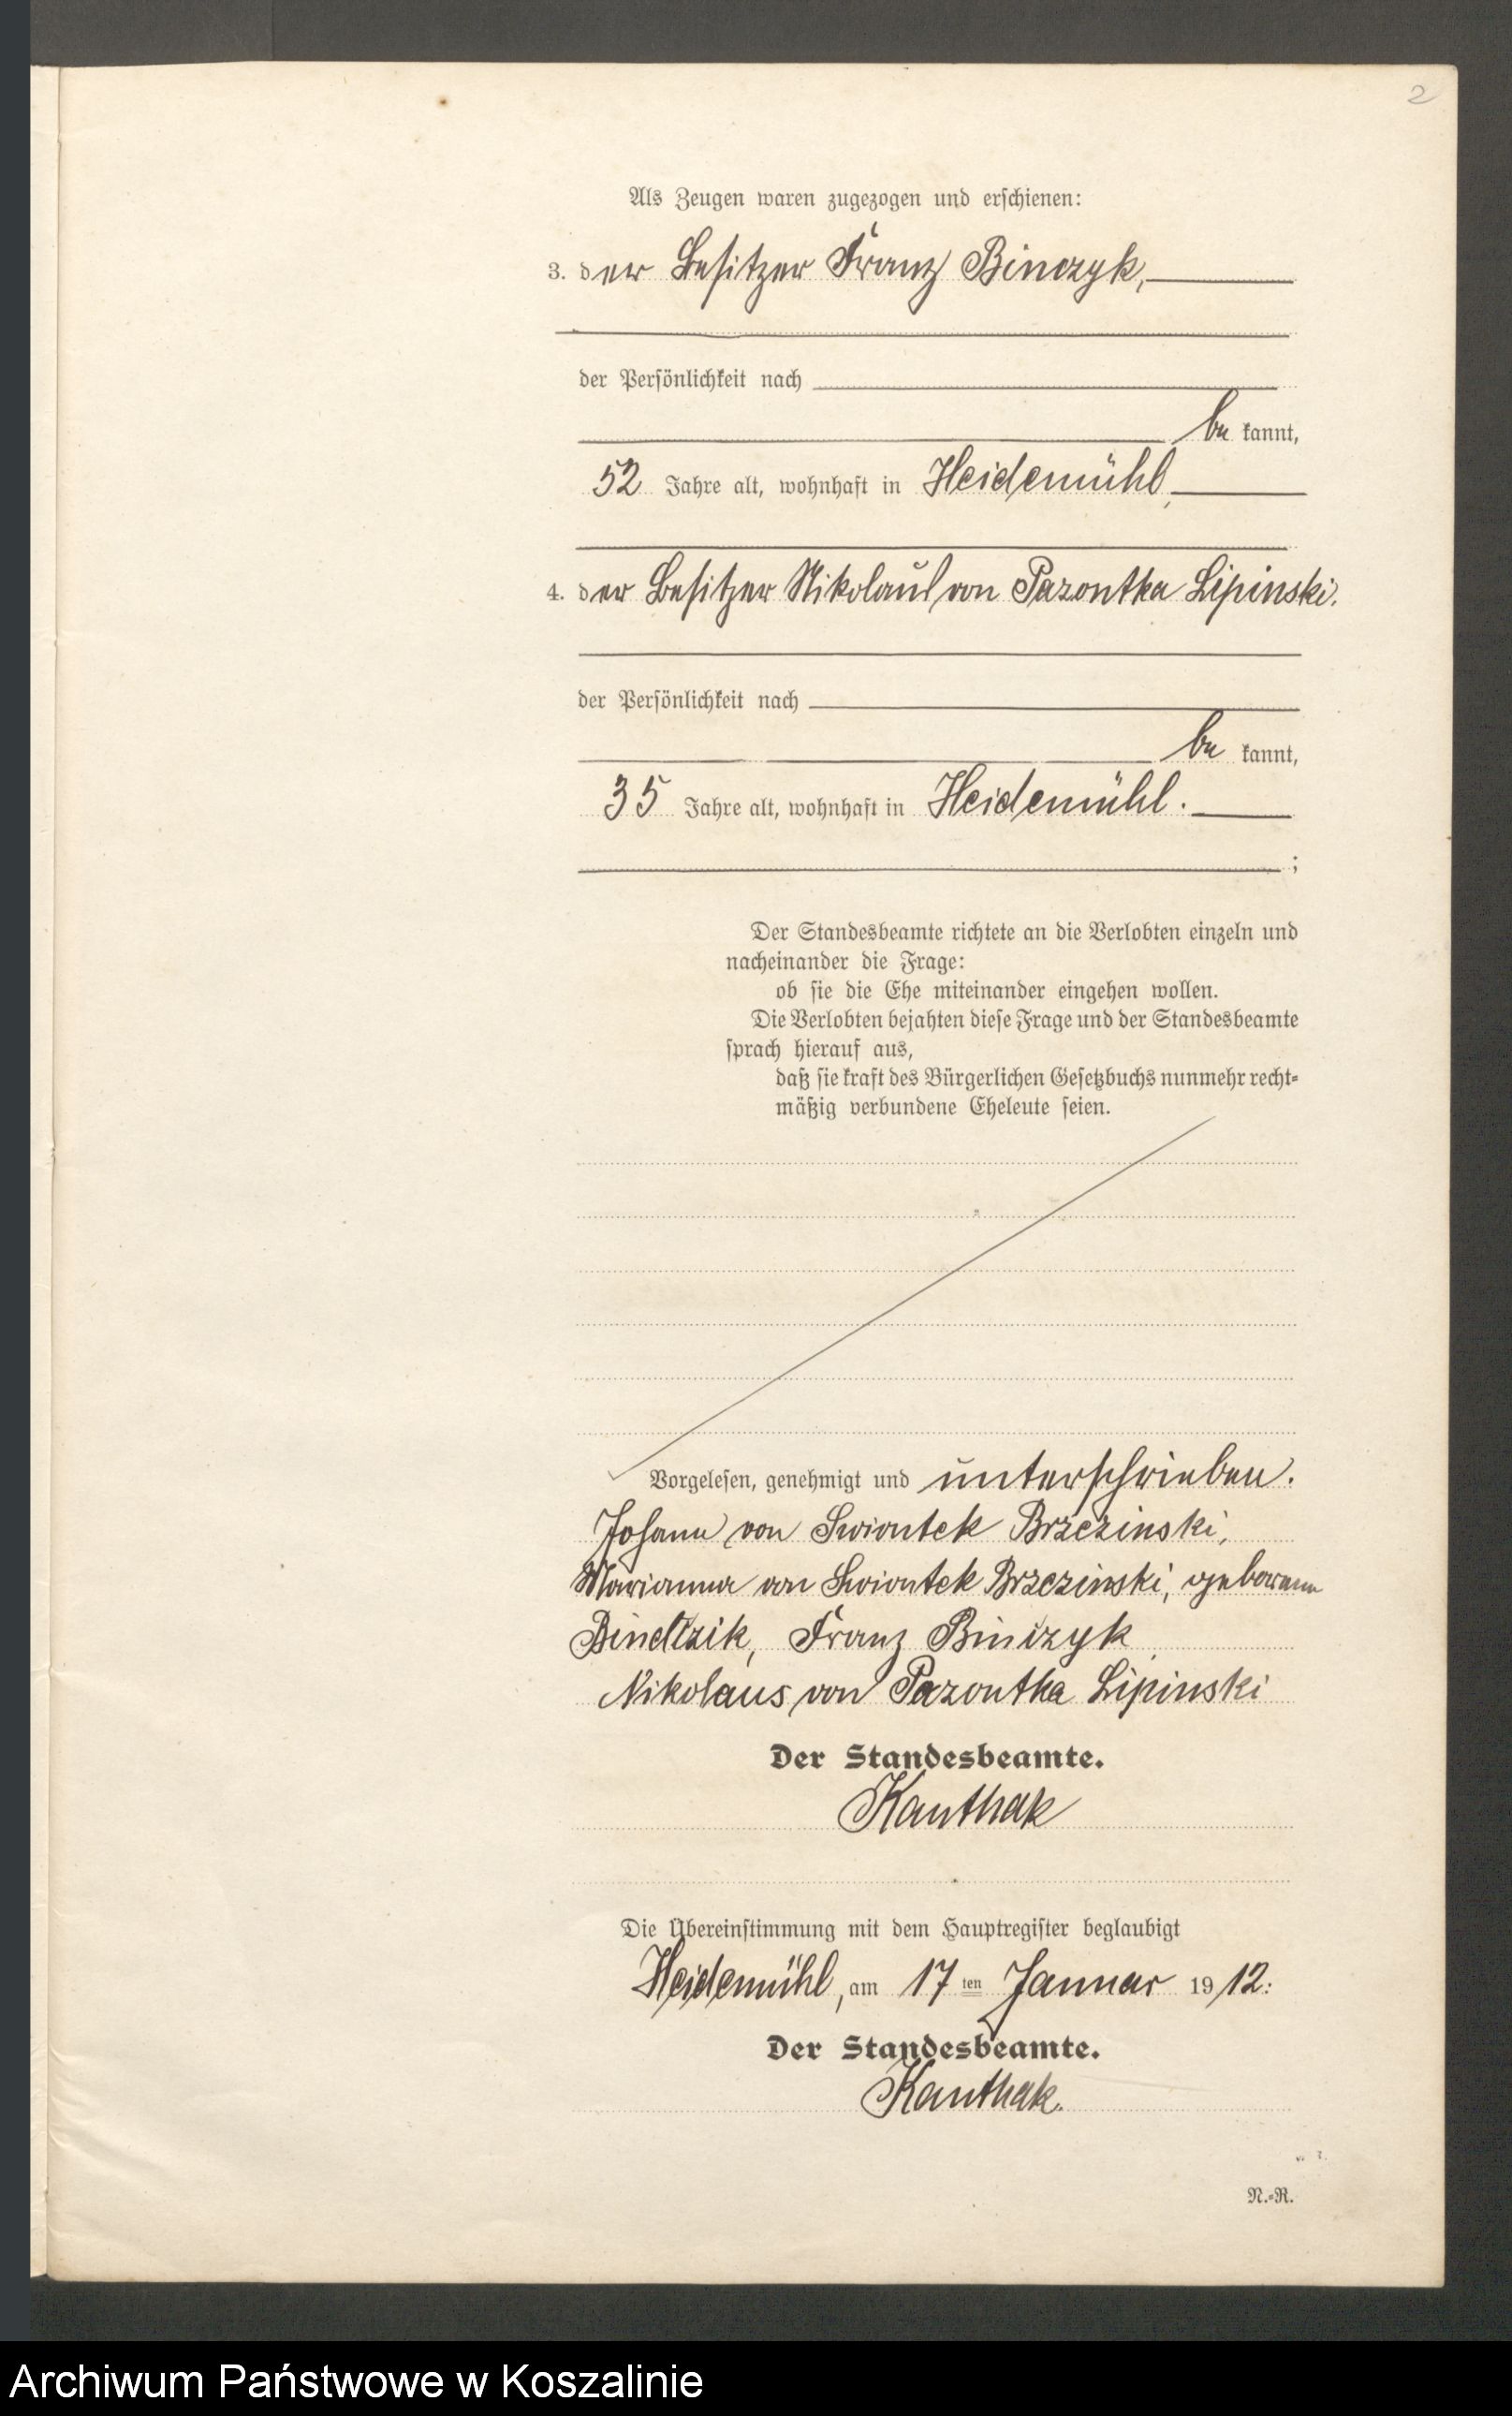 2
Als Zeugen waren zugezogen und erschienen:
3. der Besitzer Franz Binczyk,
der Persönlichkeit nach
be kannt,
52 Jahre alt, wohnhaft in Heidemühl,
4. der Besitzer Nikolaus von Pazontka Lipinski.
der Persönlichkeit nach
be kannt,
35 Jahre alt, wohnhaft in Heidemühl.
;
Der Standesbeamte richtete an die Verlobten einzeln und
nacheinander die Frage:
ob sie die Ehe miteinander eingehen wollen.
Die Verlobten bejahten diese Frage und der Standesbeamte
sprach hierauf aus,
daß sie kraft des Bürgerlichen Gesetzbuchs nunmehr recht-
mäßig verbundene Eheleute seien.
Vorgelesen, genehmigt und unterschrieben.
Johann von Swiontek Brzezinski,
Marianna von Swiontek Brzezinski, geborene
Binczik, Franz Binczyk,
Nikolaus von Pazontka Lipinski
Der Standesbeamte.
Kanthak
Die Übereinstimmung mit dem Hauptregister beglaubigt
Heidemühl, am 17 ten Januar 1912.
Der Standesbeamte.
Kanthak.
N.-R.
Archiwum Państwowe w Koszalinie